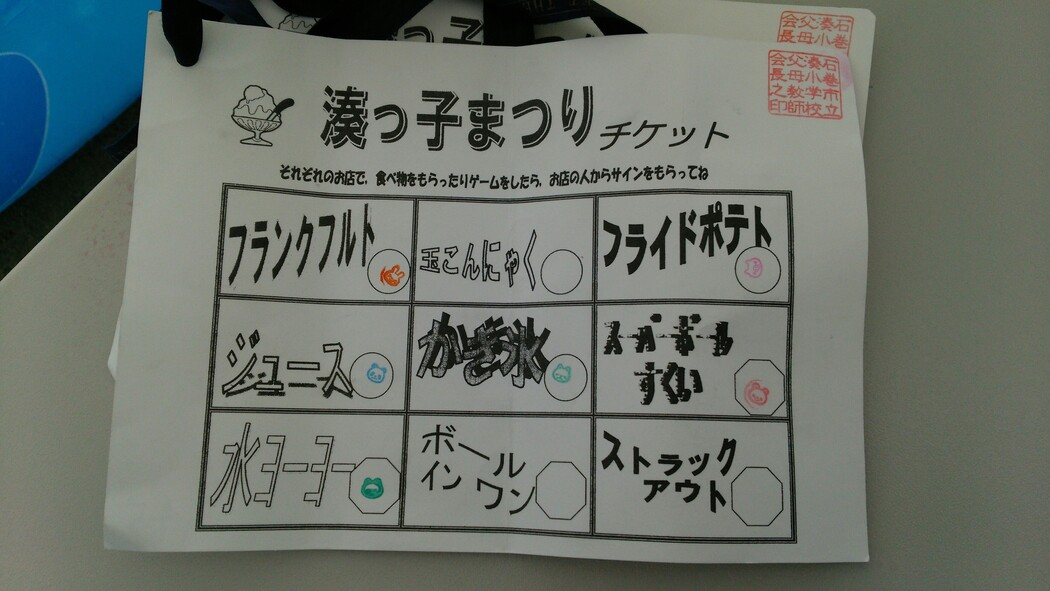 湊っ子まつりチケット
それぞれのお店で、食べ物をもらったりゲームをしたら、お店の人からサインをもらってね
フランクフルト
玉こんにゃく
フライドポテト
ジュース
かき氷
スーパーボール
すくい
水ヨーヨー
ボール
イン
ワン
ストラック
アウト
石巻
湊小
父母
会長
石巻市立
湊小学校
父母教師
会長之印